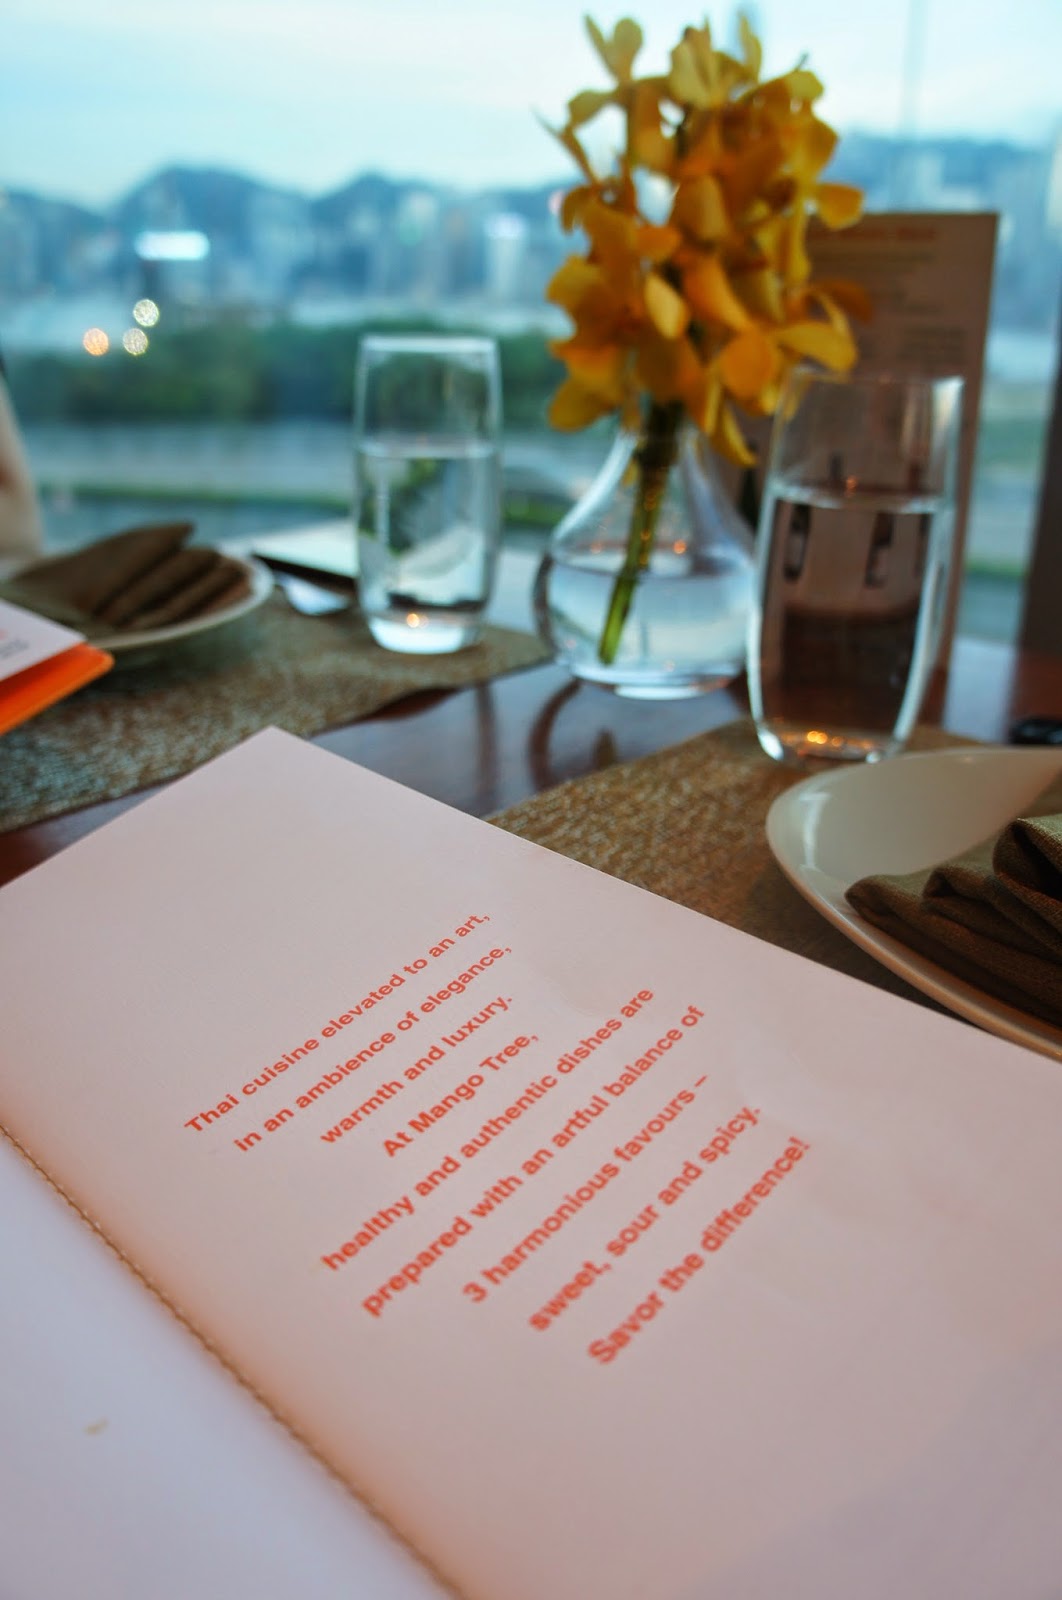 Thai cuisine elevated to an art,
in an ambience of elegance,
warmth and luxury.
At Mango Tree,
healthy and authentic dishes are
prepared with an artful balance of
3 harmonious favours –
sweet, sour and spicy.
Savor the difference!